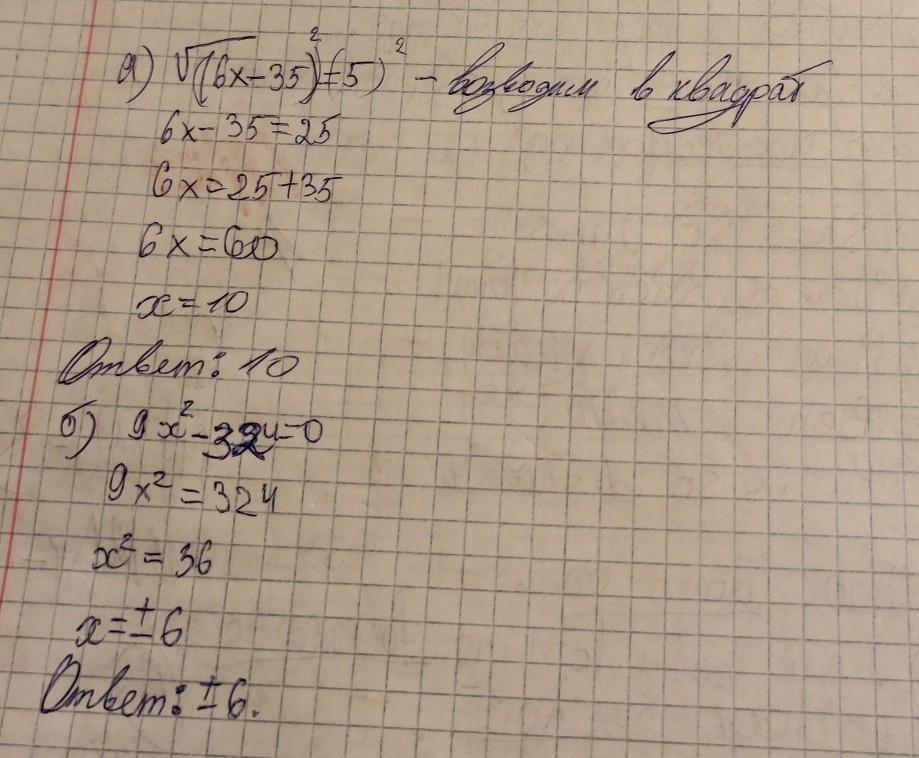 а) √(6x-35)²=(5)² - возводим в квадрат
6x-35=25
6x=25+35
6x=60
x=10
Ответ: 10
б) 9x²-324=0
9x²=324
x²=36
x=±6
Ответ: ±6.